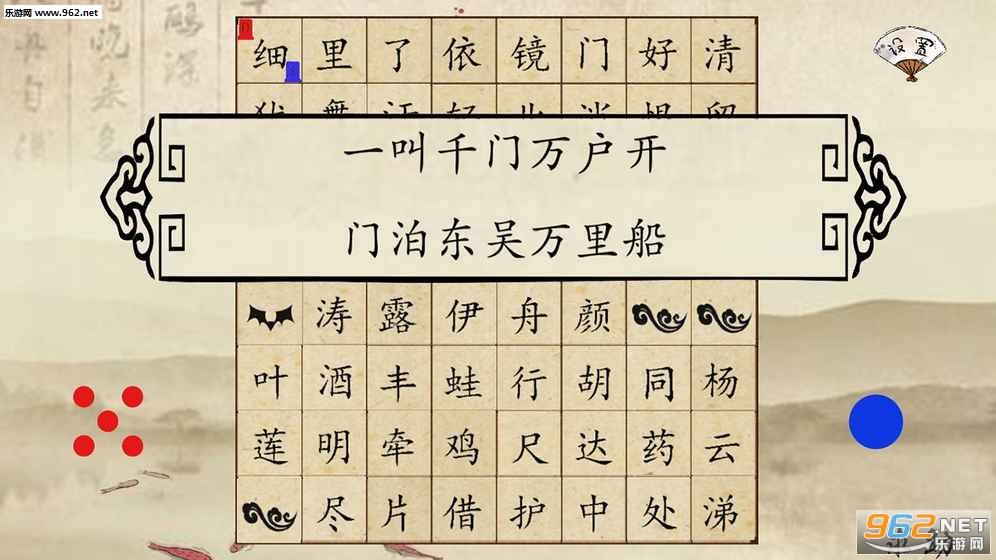 乐游网 www.962.net
细里了依镜门好清
设置
一叫千门万户开
门泊东吴万里船
涛露伊舟颜
叶酒丰蛙行胡同杨
莲明牵鸡尺达药云
尽片借护中处涕
962.NET
乐游网